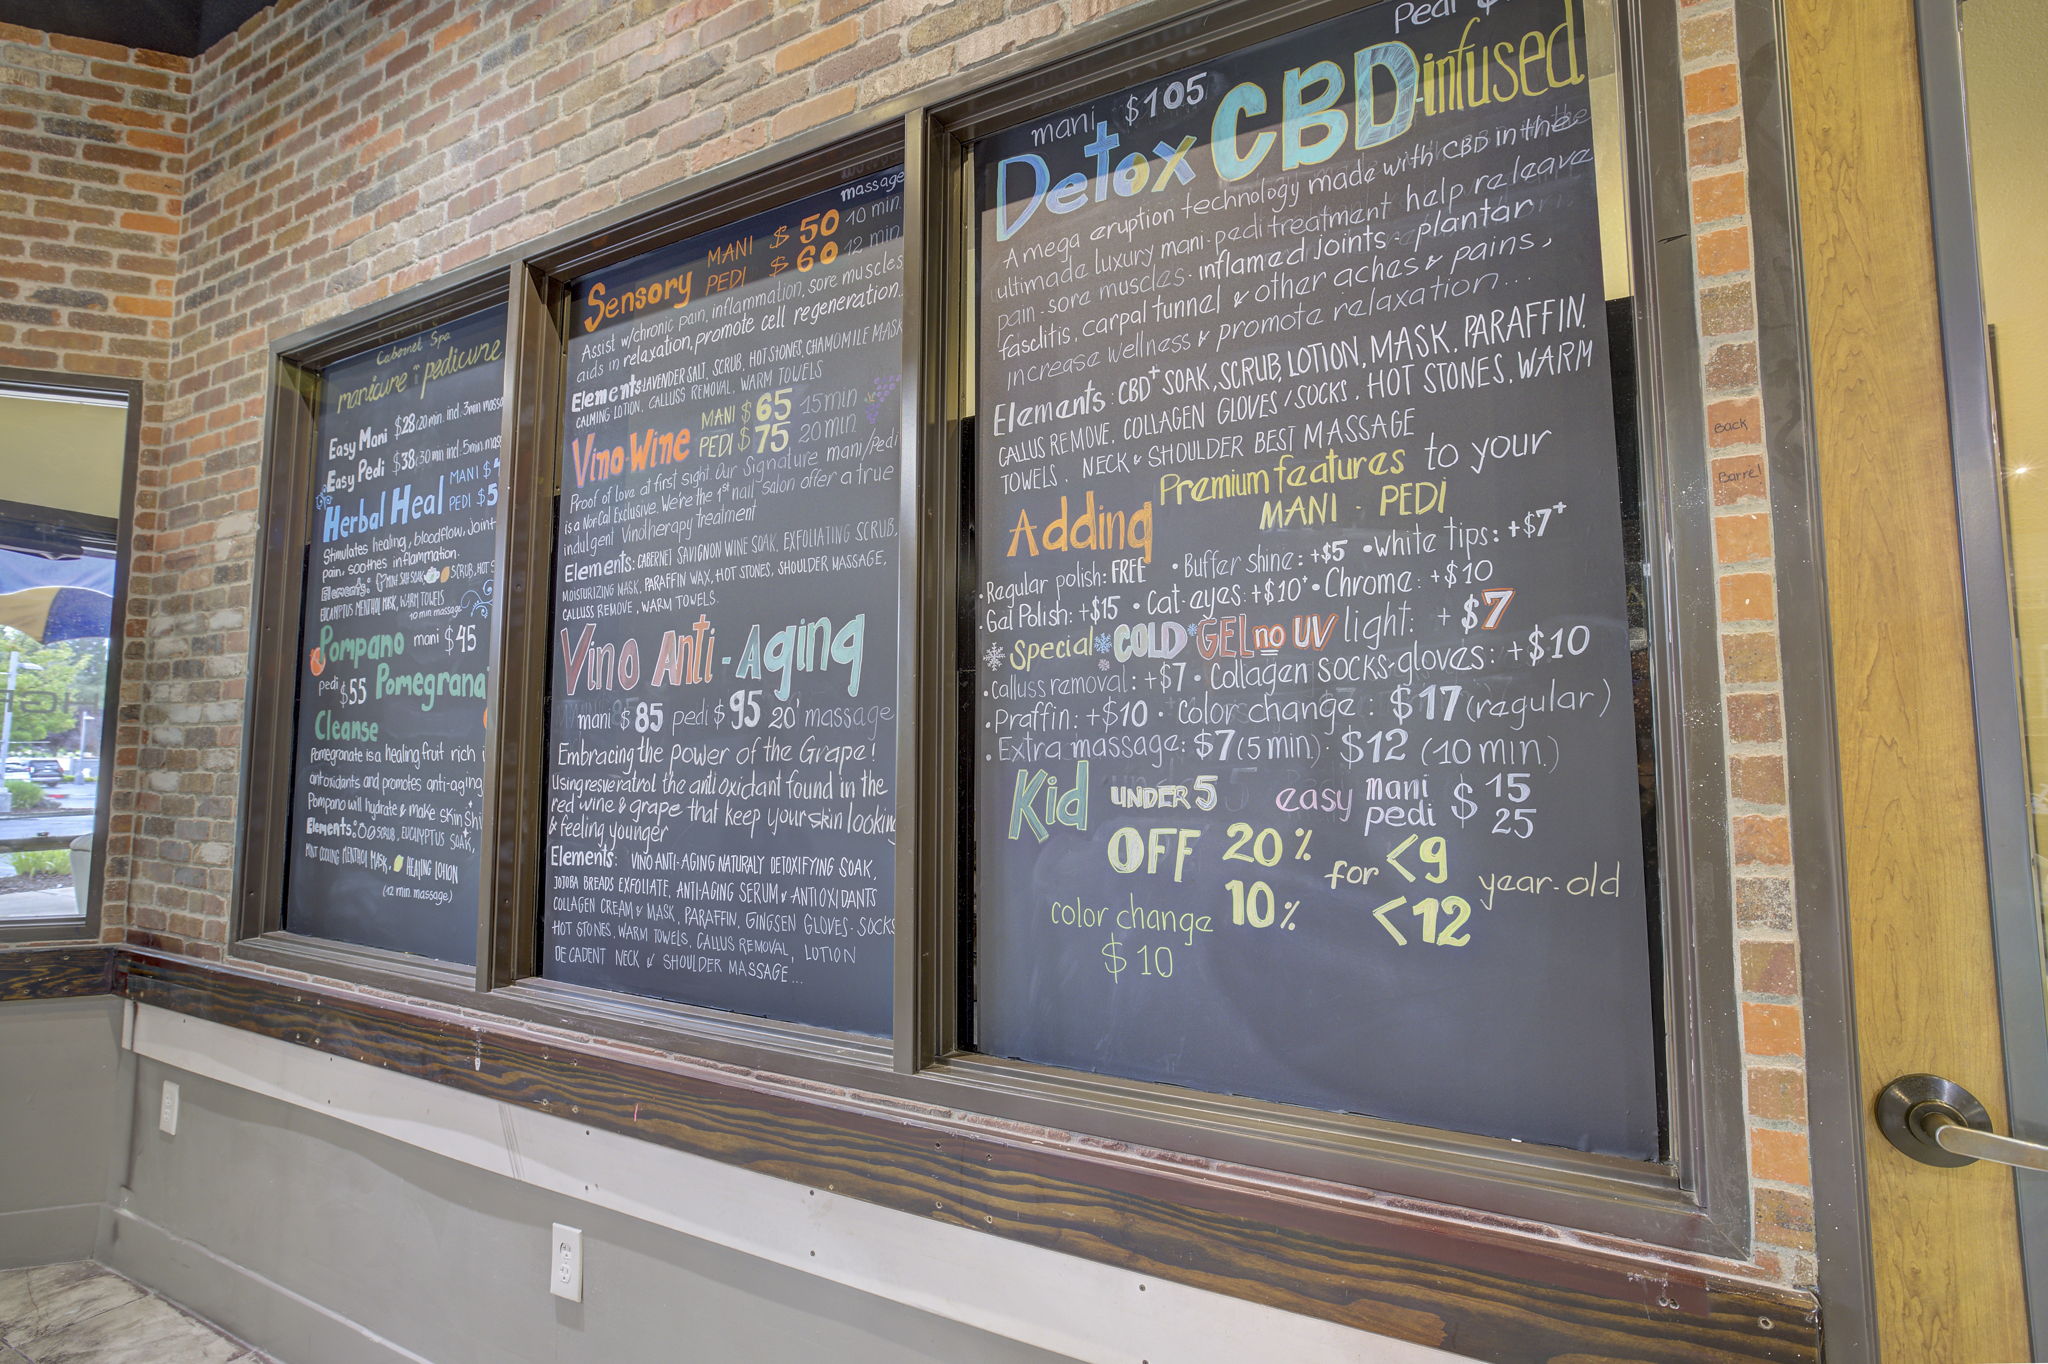 Cabernet Spa
manicure " pedicure
Easy Mani $28 (20 min. incl. 3min massa
Easy Pedi $38 (30 min incl. 5min mas
Herbal Heal MANI $
PEDI $5
Stimulates healing, bloodflow, joint
pain, soothes inflammation.
Elements: SCRUB, HOT S
EUCALYPTUS MENTHOL MASK, WARM TOWELS
10 min massage
Pompano mani $45
pedi $55 Pomegrana
Cleanse
Pomegranate is a healing fruit rich i
antioxidants and promotes anti-aging,
Pompano will hydrate & make skin shi
Elements: SCRUB, EUCALYPTUS SOAK,
MINT COOLING MENTHOL MASK, HEALING LOTION
(12 min. massage)
massage
Sensory MANI $50 10 min.
PEDI $60 12 min.
Assist w/chronic pain, inflammation, sore muscles,
aids in relaxation, promote cell regeneration.
Elements: LAVENDER SALT, SCRUB, HOT STONES, CHAMOMILE MASK
CALMING LOTION, CALLUSS REMOVAL, WARM TOWELS
Vino Wine MANI $65 15min
PEDI $75 20 min
Proof of love at first sight. Our Signature mani/pedi
is a Nor-Cal Exclusive. We're the 1st nail salon offer a true
indulgent Vinotherapy treatment
Elements: CABERNET SAVIGNON WINE SOAK, EXFOLIATING SCRUB,
MOISTURIZING MASK, PARAFFIN WAX, HOT STONES, SHOULDER MASSAGE,
CALLUSS REMOVE, WARM TOWELS.
Vino Anti-Aging
mani $85 pedi $95 20' massage
Embracing the power of the Grape!
Using resveratrol the antioxidant found in the
red wine & grape that keep your skin looking
& feeling younger
Elements: VINO ANTI-AGING NATURALY DETOXIFYING SOAK,
JOJOBA BREADS EXFOLIATE, ANTI-AGING SERUM & ANTIOXIDANTS
COLLAGEN CREAM & MASK, PARAFFIN, GINGSEN GLOVES-SOCKS
HOT STONES, WARM TOWELS, CALLUS REMOVAL, LOTION
DECADENT NECK & SHOULDER MASSAGE...
mani $105 pedi $
Detox CBD-infused
A mega eruption technology made with CBD in the
ultimade luxury mani-pedi treatment help releave
pain-sore muscles-inflamed joints-plantar
fascitis, carpal tunnel & other aches & pains,
increase wellness & promote relaxation...
Elements: CBD+ SOAK, SCRUB, LOTION, MASK, PARAFFIN,
CALLUS REMOVE, COLLAGEN GLOVES/SOCKS, HOT STONES, WARM
TOWELS, NECK & SHOULDER BEST MASSAGE
Adding Premium features to your
MANI - PEDI
• Regular polish: FREE • Buffer shine: +$5 • White tips: +$7+
• Gel Polish: +$15 • Cat-eyes: +$10+ • Chrome: +$10
Special COLD GEL no UV light: +$7
• Calluss removal: +$7 • Collagen socks-gloves: +$10
• Praffin: +$10 • Color change: $17 (regular)
• Extra massage: $7 (5 min) • $12 (10 min.)
Kid UNDER 5 easy mani $ 15
pedi 25
OFF 20% for <9 year-old
10% <12
color change
$10
Back
Barrel